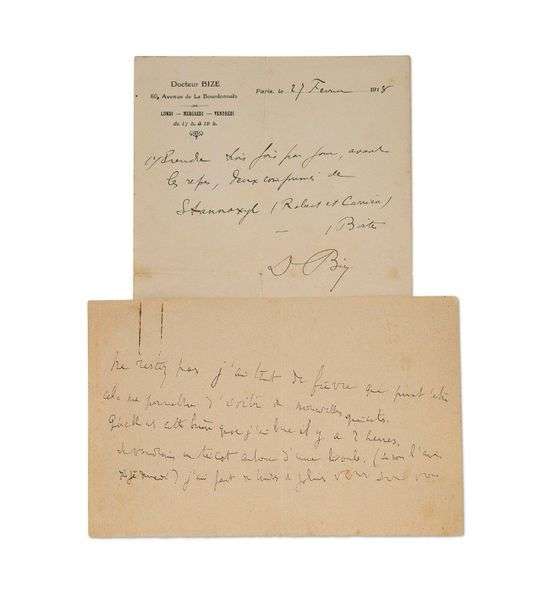 Docteur BIZE
69, Avenue de La Bourdonnais
LUNDI — MERCREDI — VENDREDI
de 17 h. à 19 h.
Paris, le 27 Février 1918
1°/ Prendre trois fois par jour, avant
les repas, deux comprimés de
Stannoxyl (Robert et Carrière)
1 Boite
D Bize
Ne restez pas j'ai tant de fièvre que peut être
cela me permettra d'éviter de nouvelles
Quelle est cette bière que j'ai bue il y a 2 heures.
Je voudrais un tricot autour d'une boule. (
) j'ai fait de plus